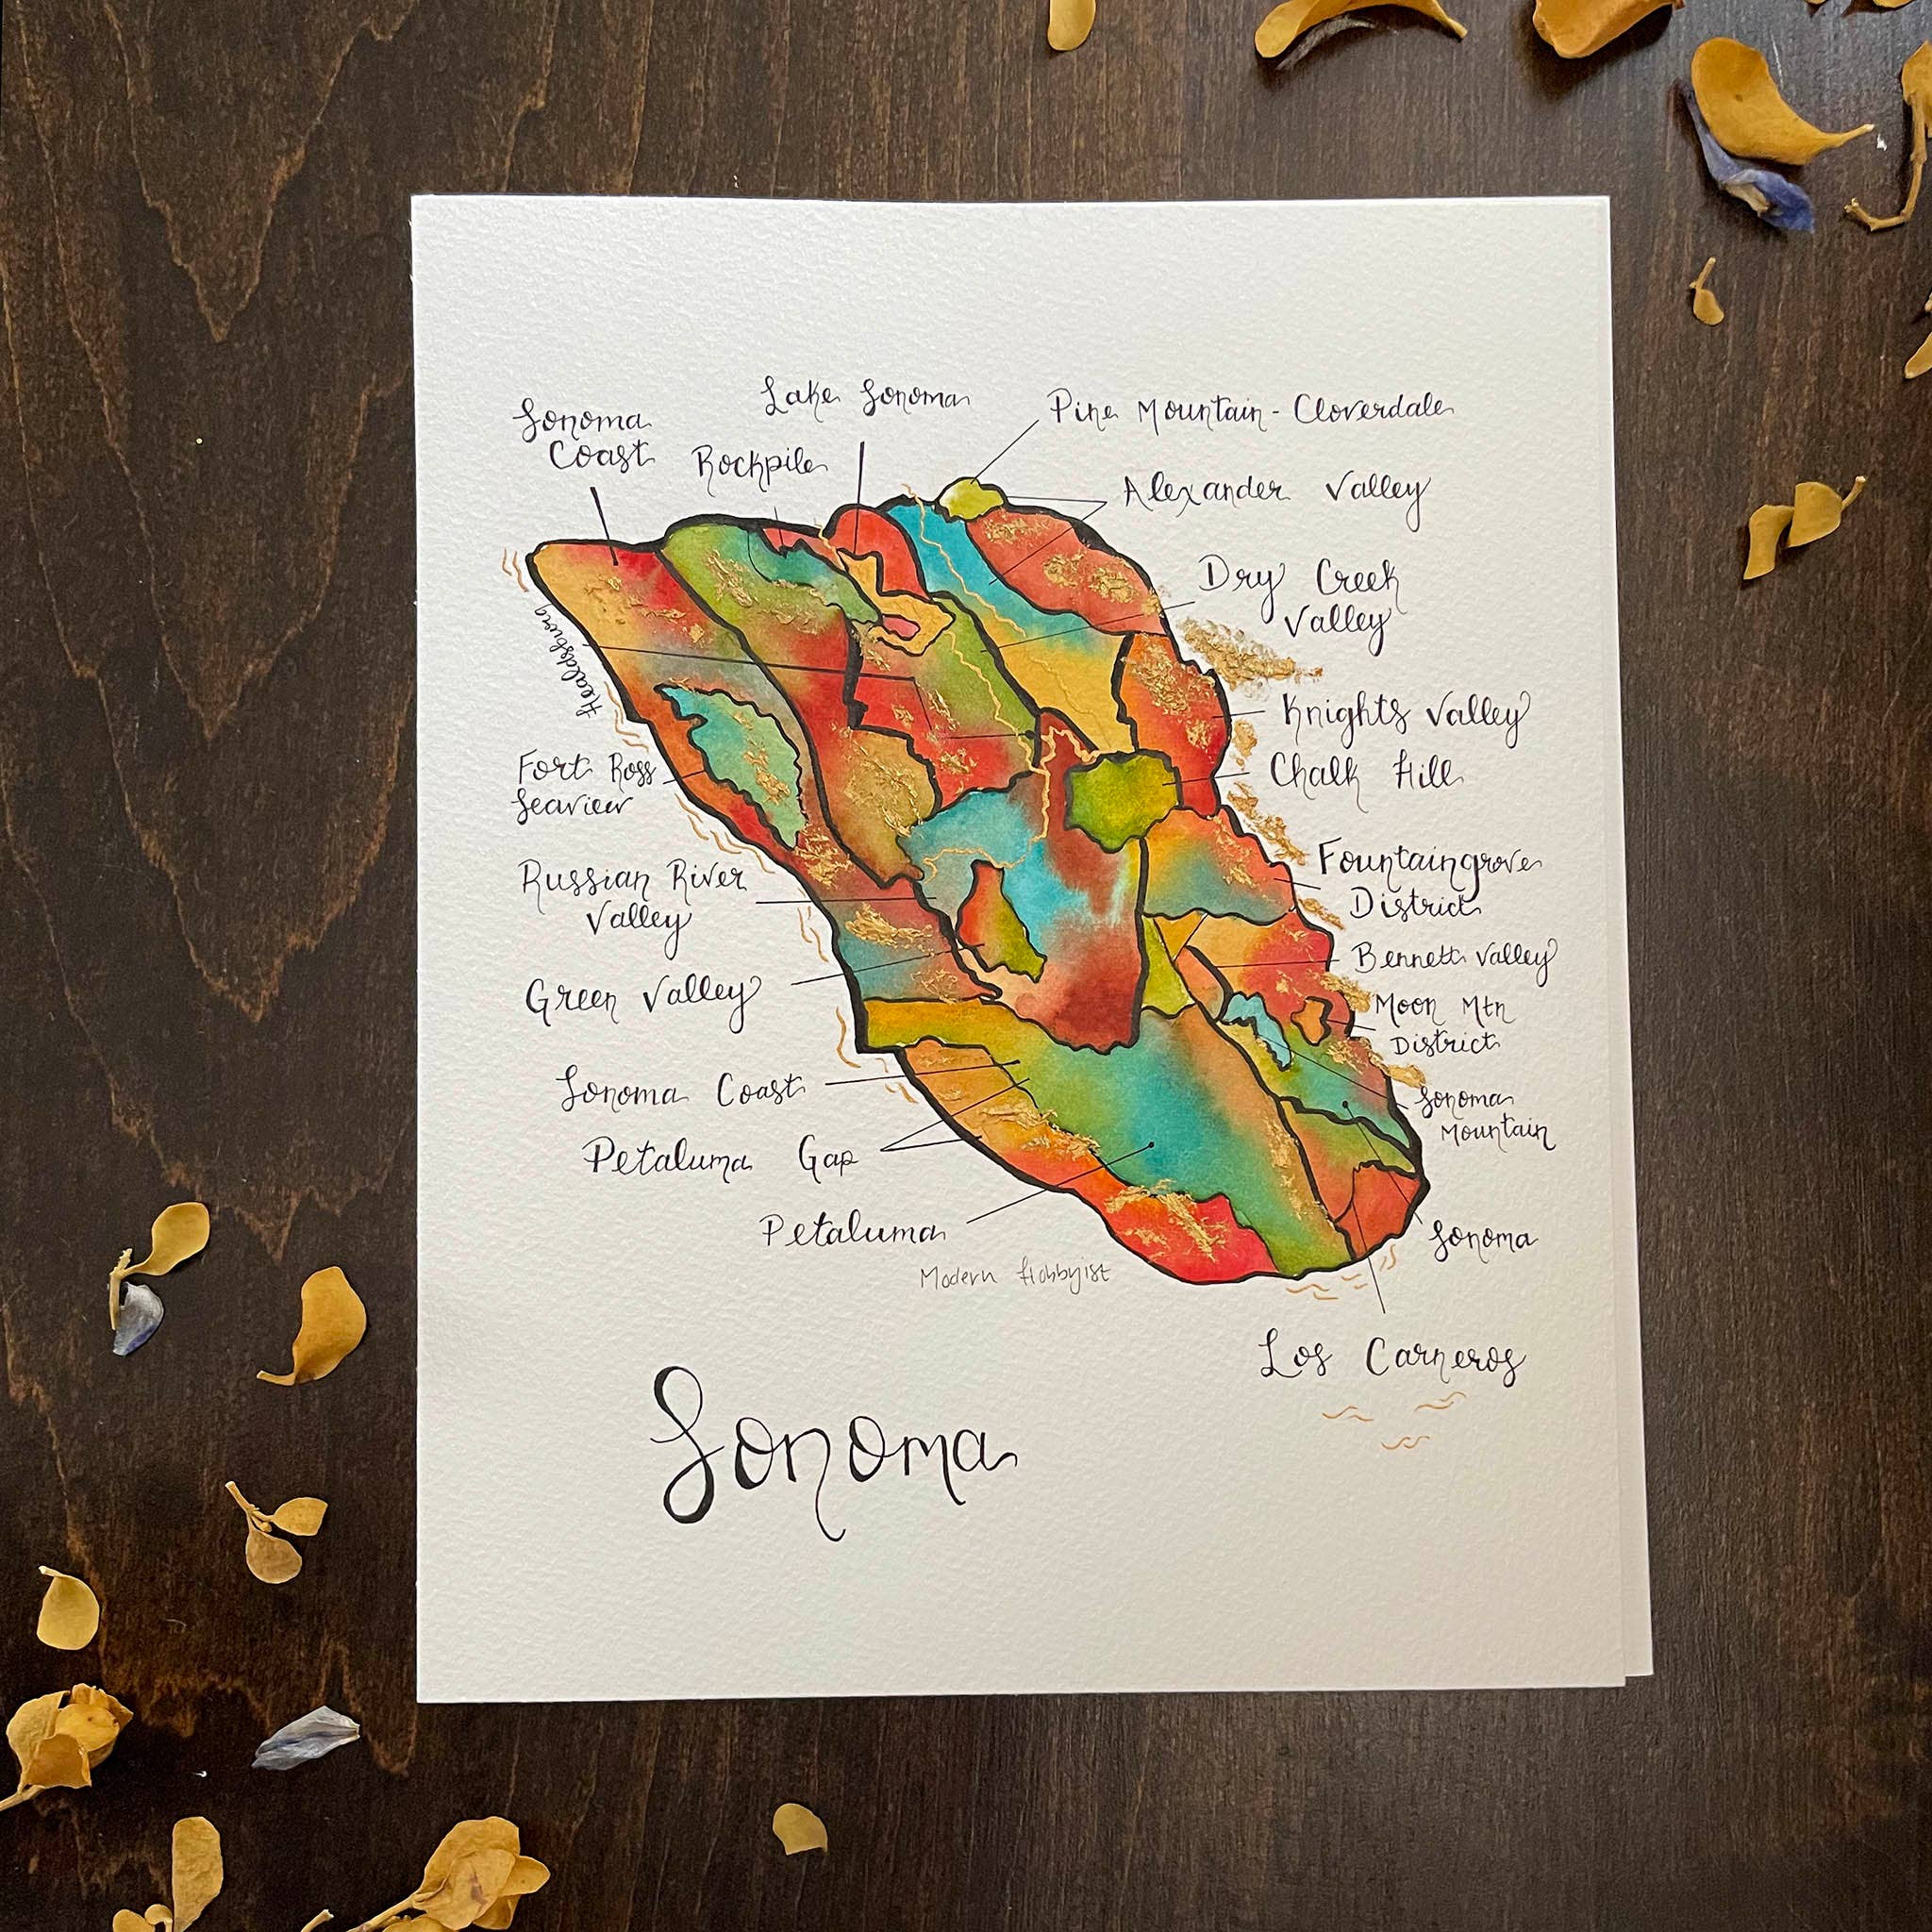 Lake Sonoma
Sonoma
Coast
Rockpile
Pine Mountain - Cloverdale
Alexander Valley
Dry Creek
Valley
Healdsburg
Knights Valley
Fort Ross
Seaview
Chalk Hill
Russian River
Valley
Fountaingrove
District
Green Valley
Bennett Valley
Moon Mtn
District
Sonoma Coast
Sonoma
Mountain
Petaluma Gap
Petaluma
Sonoma
Modern Hobbyist
Los Carneros
Sonoma